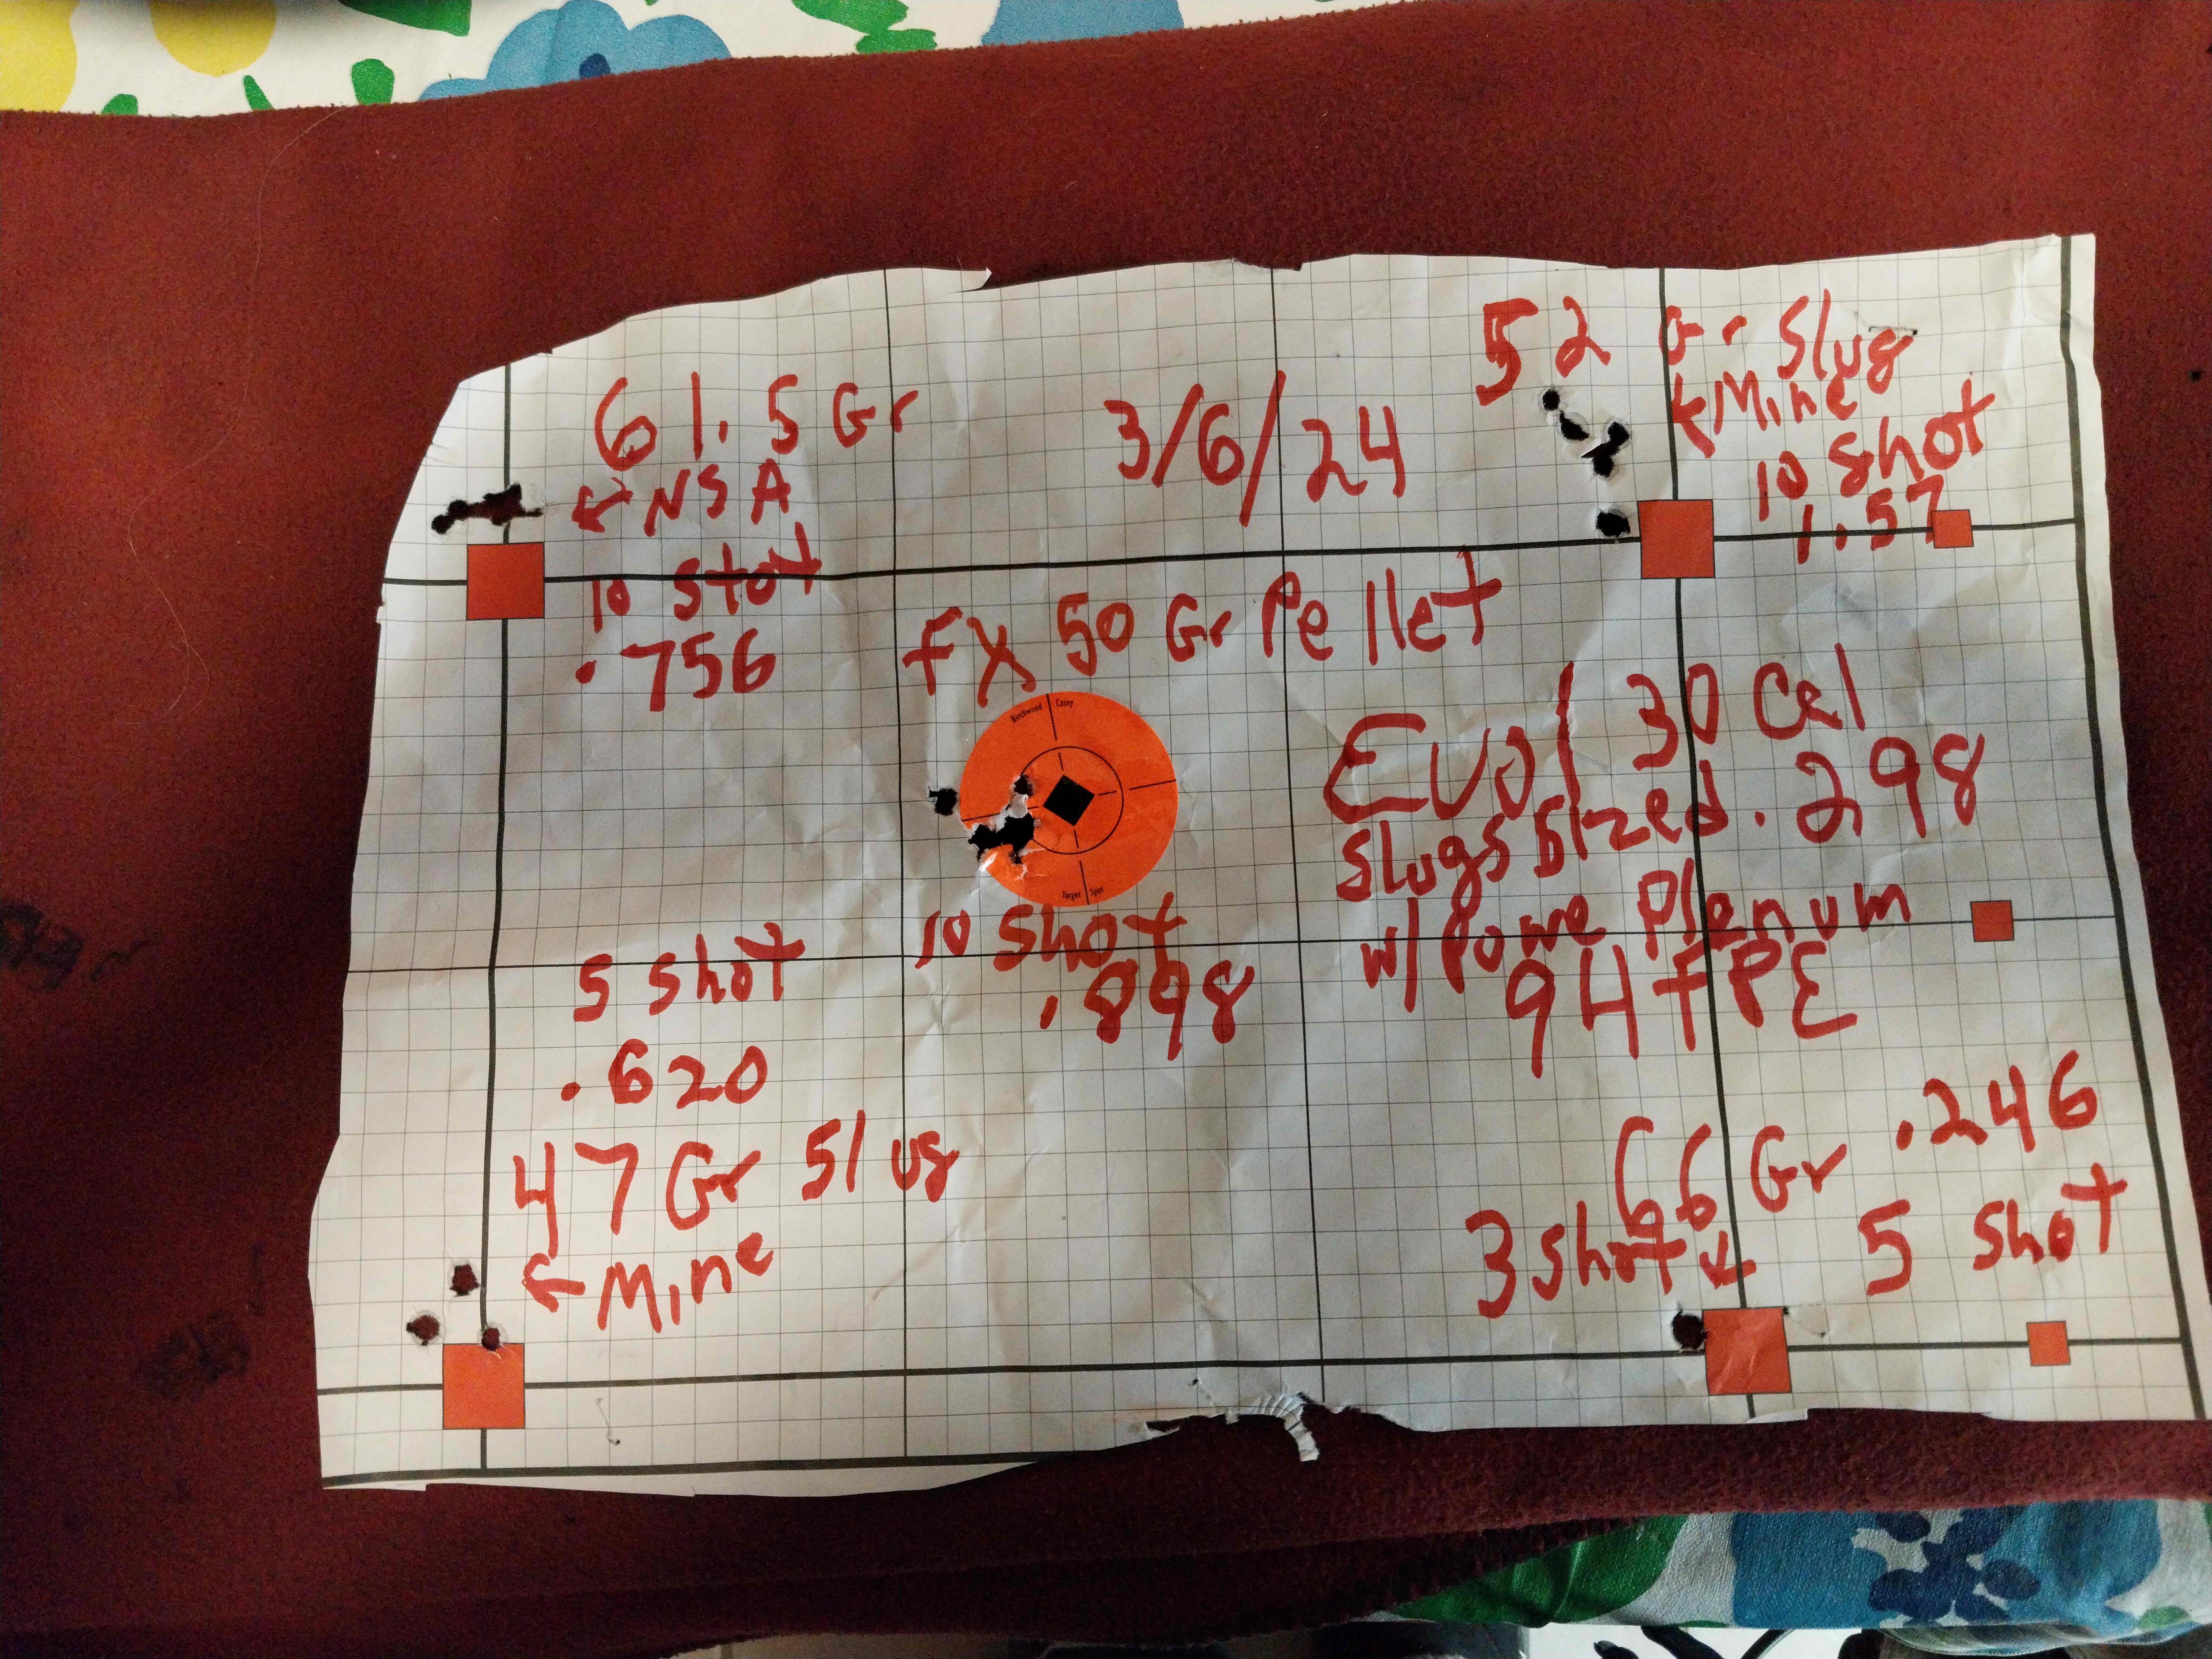 61.5 Gr
← NSA
10 Stot
.756
3/6/24
52 Gr Slug
← Mine
10 Shot
1.57
FX 50 Gr Pellet
Birchwood Casey
Target Spot
10 Shot
.898
Evol 30 Cal
Slugs Sized .298
w/ Powe Plenum
94 FPE
5 Shot
.620
47 Gr Slug
← Mine
66 Gr .246
3 Shot ↓ 5 Shot